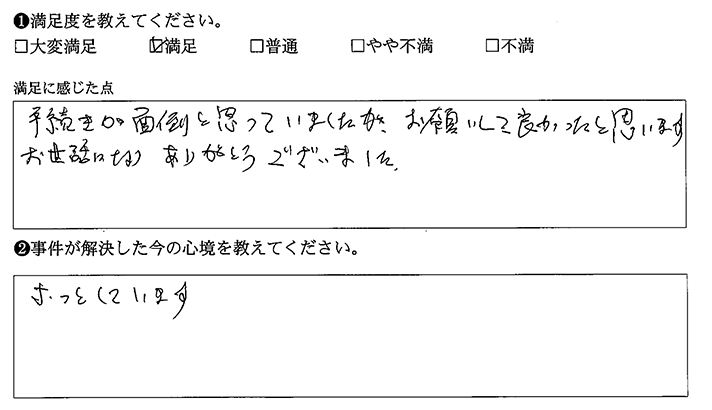 ❶満足度を教えてください。
□大変満足 ☑満足 □普通 □やや不満 □不満
満足に感じた点
手続きが面倒と思っていましたが、お願いして良かったと思います
お世話になり ありがとうございました。
❷事件が解決した今の心境を教えてください。
ほっとしています